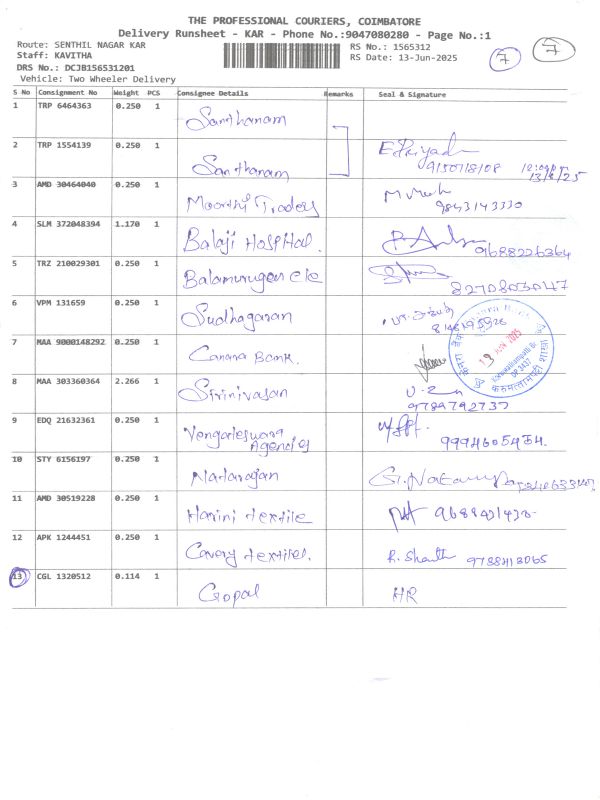 THE PROFESSIONAL COURIERS, COIMBATORE
Delivery Runsheet - KAR - Phone No.:9047080280 - Page No.:1
Route: SENTHIL NAGAR KAR
Staff: KAVITHA
DRS No.: DCJB156531201
Vehicle: Two Wheeler Delivery
RS No.: 1565312
RS Date: 13-Jun-2025
7 7
S No Consignment No Weight PCS Consignee Details Remarks Seal & Signature
1 TRP 6464363 0.250 1 Santhanam
2 TRP 1554139 0.250 1 Santhanam E.Priyadh
9150718108 13/6/25
3 AMD 30464040 0.250 1 Moorthi Traders
9843143330
4 SLM 372048394 1.170 1 Balaji Hospital. 9688226364
5 TRZ 210029301 0.250 1 Balamurugan Ele
8270803047
6 VPM 131659 0.250 1 Sudhagaran
7 MAA 9000148292 0.250 1 Canara Bank.
8 MAA 303360364 2.266 1 Srinivasan
9789792737
9 EDQ 21632361 0.250 1 Vengateswara
Agencies
9994605454.
10 STY 6156197 0.250 1 Natarajan
11 AMD 30519228 0.250 1 Harini textile
12 APK 1244451 0.250 1 Covery textiles. R. Shanth 9788413065
13 CGL 1320512 0.114 1 Gopal HR